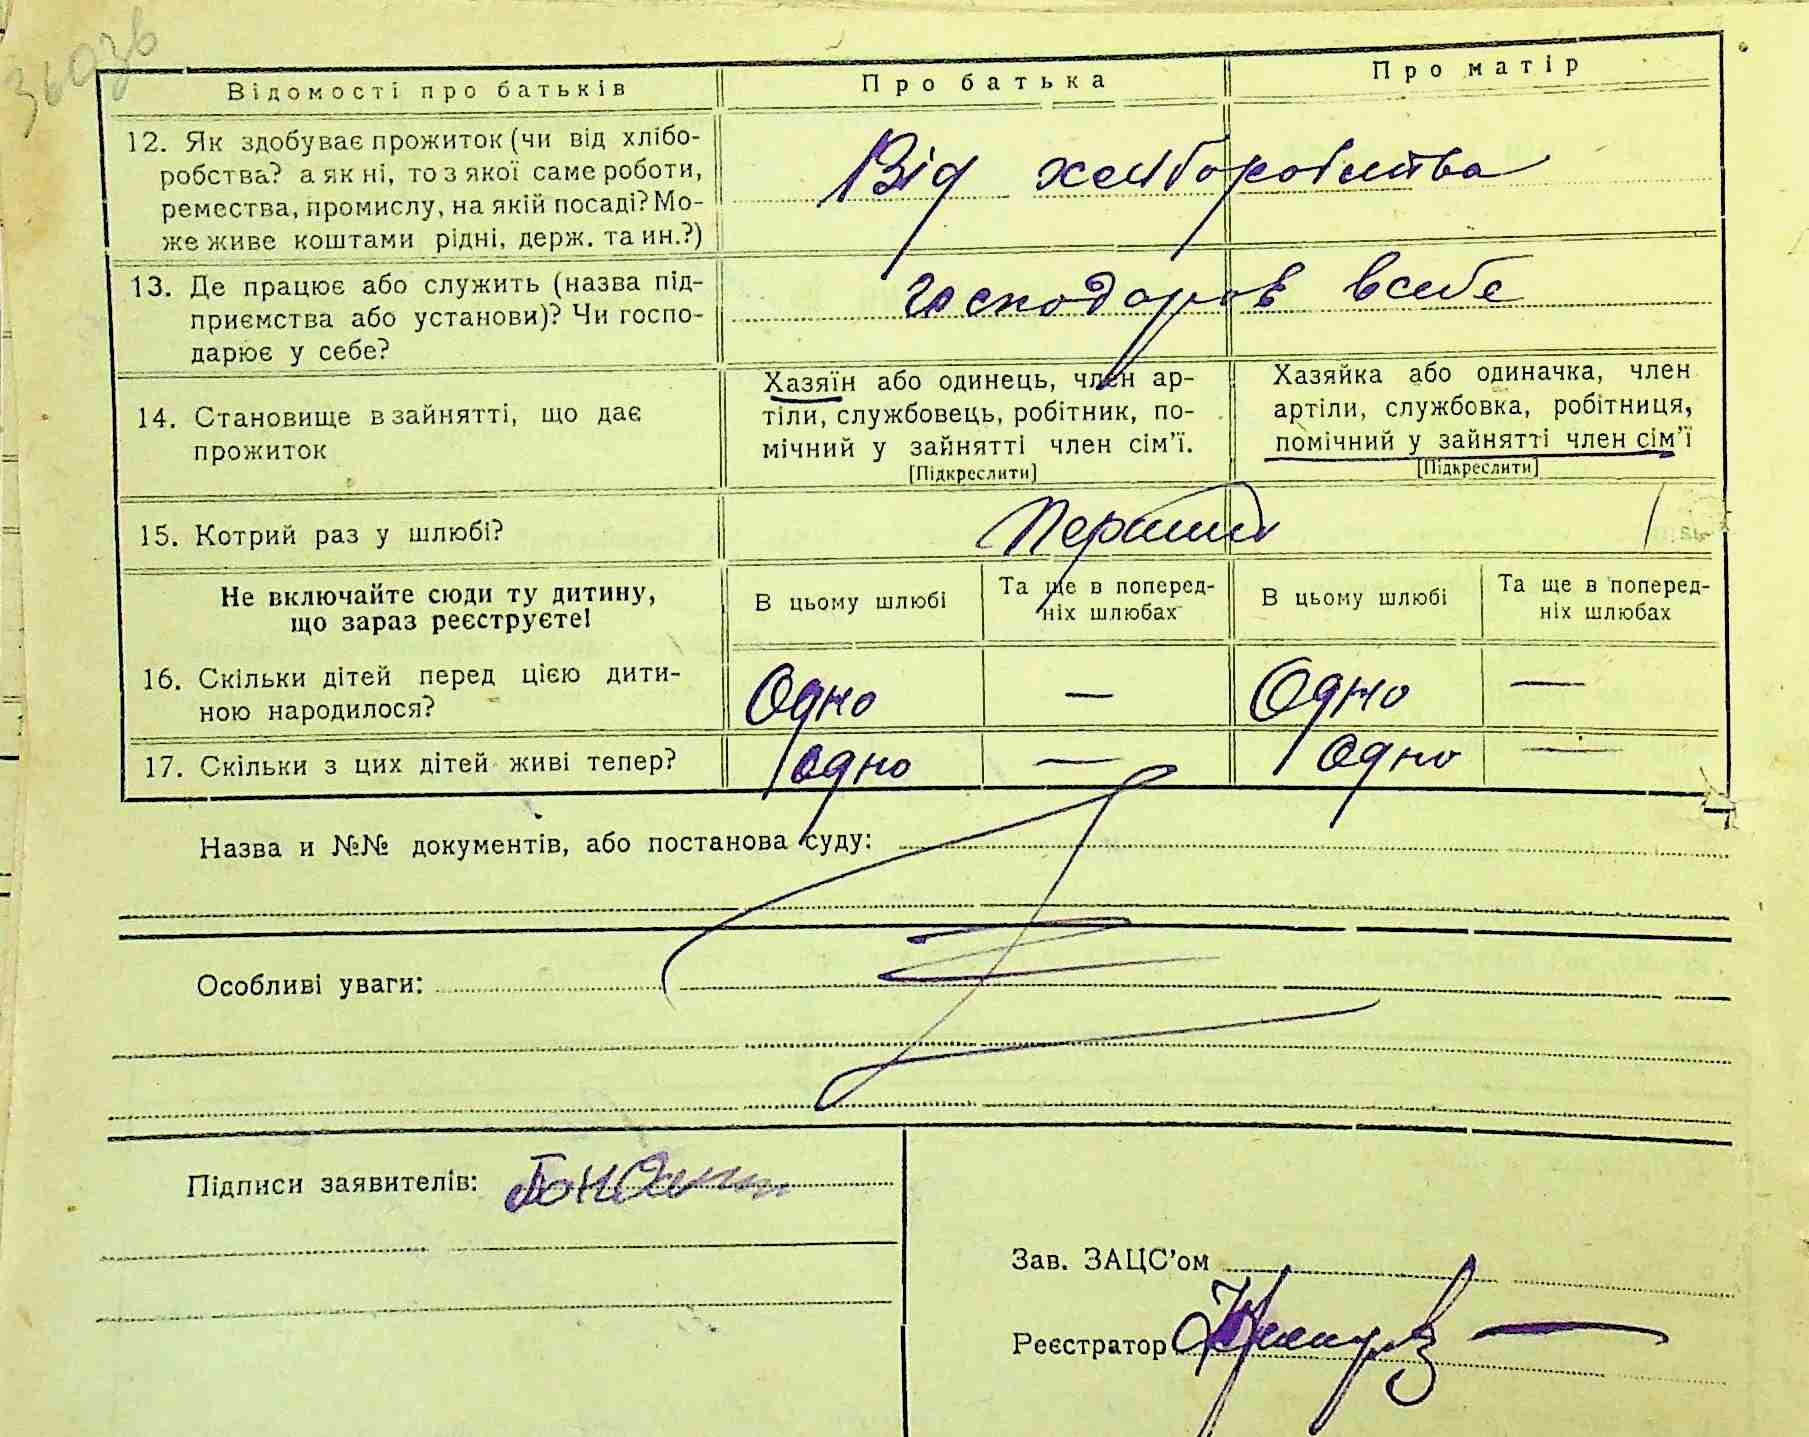 36036
Відомості про батьків Про батька Про матір
12. Як здобуває прожиток (чи від хлібо-
робства? а як ні, то з якої саме роботи,
ремества, промислу, на якій посаді? Мо-
же живе коштами рідні, держ. та ин.?)
Від хліборобства
13. Де працює або служить (назва під-
приємства або установи)? Чи госпо-
дарює у себе?
господарює в себе
14. Становище в зайнятті, що дає
прожиток
Хазяїн або одинець, член ар-
тіли, службовець, робітник, по-
мічний у зайнятті член сім’ї.
[Підкреслити]
Хазяйка або одиначка, член
артіли, службовка, робітниця,
помічний у зайнятті член сім’ї
[Підкреслити]
15. Котрий раз у шлюбі?
Перший
Не включайте сюди ту дитину,
що зараз реєструєте!
В цьому шлюбі
Та ще в поперед-
ніх шлюбах
В цьому шлюбі
Та ще в поперед-
ніх шлюбах
16. Скільки дітей перед цією дити-
ною народилося?
Одно — Одно —
17. Скільки з цих дітей живі тепер?
Одно — Одно —
Назва и №№ документів, або постанова суду:
Особливі уваги:
Підписи заявителів:
Зав. ЗАЦС’ом
Реєстратор